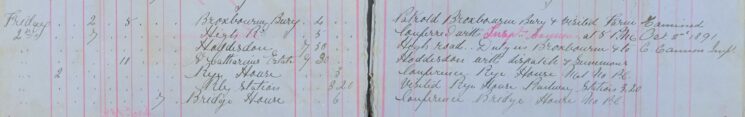 Friday 2 5 Broxbourne Bury 4 Patrold Broxbourne Bury & visited Farm Examined
2nd 7 Herts Rd 5 Conferrd with at 5 P.M. Oct 5th 1891
Hoddesdon 7 30 High road. Duty in Broxbourne & to C Cannon Inspr
11 St Catharines Estate 9 20 Hoddesdon with dispatch & Summons
2 Rye House 3 Conference Rye House Met No PC
Rly Station 3.20 Visited Rye House Railway Station 3.20
7 Bridge House 6 Conference Bridge House No PC